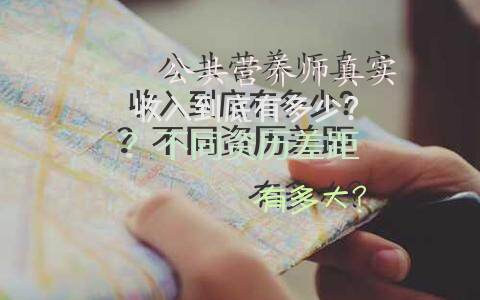 公共营养师真实
收入到底有多少?
? 不同资历差距
有多大?